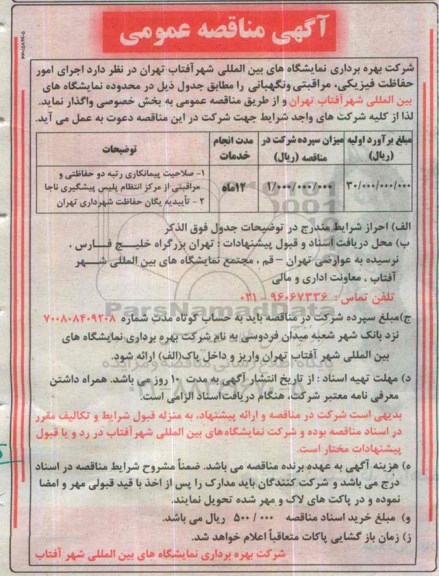 آگهی مناقصه عمومی
شرکت بهره برداری نمایشگاه های بین المللی شهر آفتاب تهران در نظر دارد اجرای امور
حفاظت فیزیکی، مراقبتی ونگهبانی را مطابق جدول ذیل در محدوده نمایشگاه های
بین المللی شهر آفتاب تهران و از طریق مناقصه عمومی به بخش خصوصی واگذار نماید.
لذا از کلیه شرکت های واجد شرایط جهت شرکت در این مناقصه دعوت به عمل می آید.
مبلغ برآورد اولیه (ریال)
میزان سپرده شرکت در مناقصه (ریال)
مدت انجام خدمات
توضیحات
۳۰/۰۰۰/۰۰۰/۰۰۰
۱/۰۰۰/۰۰۰/۰۰۰
۱۲ماه
۱- صلاحیت پیمانکاری رتبه دو حفاظتی و
مراقبتی از مرکز انتظام پلیس پیشگیری ناجا
۲ - تأییدیه یگان حفاظت شهرداری تهران
الف) احراز شرایط مندرج در توضیحات جدول فوق الذکر
ب) محل دریافت اسناد و قبول پیشنهادات : تهران بزرگراه خلیج فارس ،
نرسیده به عوارضی تهران - قم ، مجتمع نمایشگاه های بین المللی شهر
آفتاب ، معاونت اداری و مالی
تلفن تماس: ۹۶۰۶۷۳۳۶ - ۰۲۱
ج)مبلغ سپرده شرکت در مناقصه باید به حساب کوتاه مدت شماره ۷۰۰۸۰۸۴۰۹۲۰۸
نزد بانک شهر شعبه میدان فردوسی به نام شرکت بهره برداری نمایشگاه های
بین المللی شهر آفتاب تهران واریز و داخل پاک(الف) ارائه شود.
د) مهلت تهیه اسناد : از تاریخ انتشار آگهی به مدت ۱۰ روز می باشد. همراه داشتن
معرفی نامه معتبر شرکت، هنگام دریافت اسناد الزامی است.
بدیهی است شرکت در مناقصه و ارائه پیشنهاد، به منزله قبول شرایط و تکالیف مقرر
در اسناد مناقصه بوده و شرکت نمایشگاه های بین المللی شهر آفتاب در رد و یا قبول
پیشنهادات مختار است.
ه) هزینه آگهی به عهده برنده مناقصه می باشد. ضمناً مشروح شرایط مناقصه در اسناد
درج می باشد و شرکت کنندگان باید مدارک را پس از اخذ با قید قبولی مهر و امضا
نموده و در پاکت های لاک و مهر شده تحویل نمایند.
و) مبلغ خرید اسناد مناقصه ۵۰۰/۰۰۰ ریال می باشد.
ز) زمان باز گشایی پاکات متعاقباً اعلام خواهد شد.
شرکت بهره برداری نمایشگاه های بین المللی شهر آفتاب